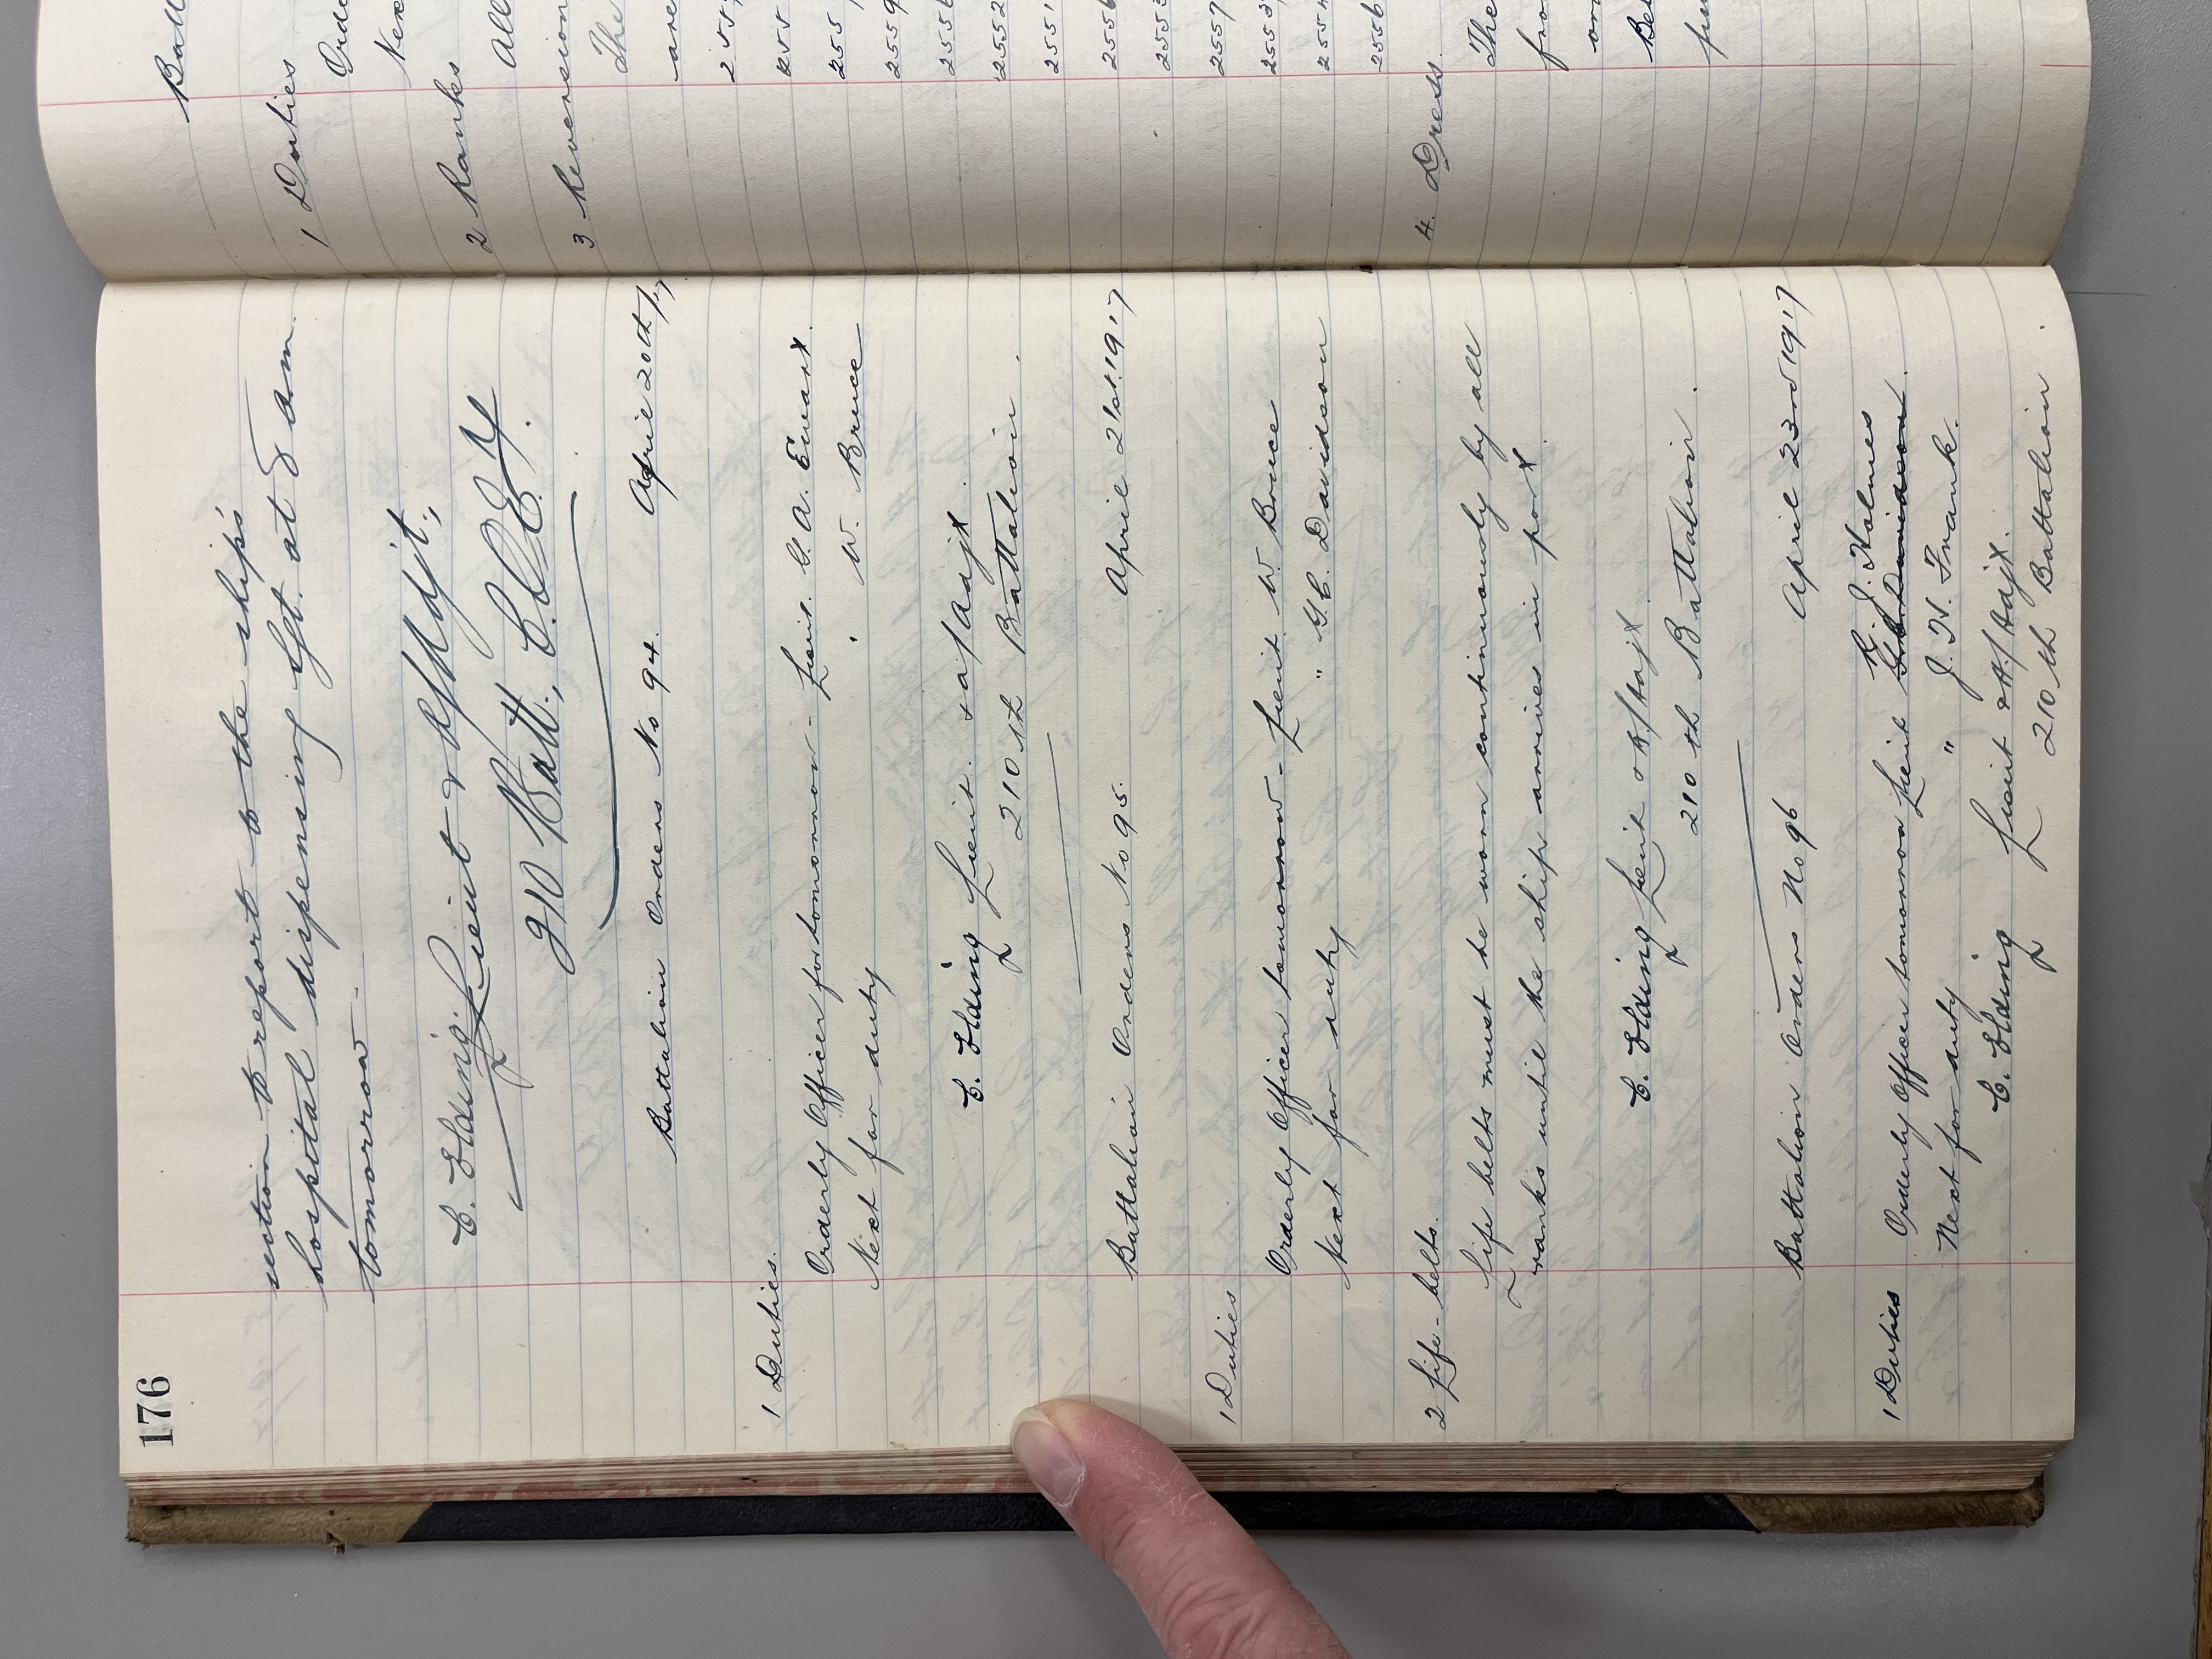 176
section to report to the ship's
hospital dispensing Sgt. at 8 am.
tomorrow.
Lieut & A/Adjt.,
210 Batt., C.E.F.
Battalion Orders No 94. April 20th/17
1 Duties.
Orderly Officer for tomorrow - Lieut. G. A. Ewart.
Next for duty " W. Bruce
Lieut. & a/Adjt.
210th Battalion.
Battalion Orders No 95. April 21st. 1917
1 Duties
Orderly Officer tomorrow - Lieut. W. Bruce
Next for duty " G. C. Davidson
2 Life-belts.
Life belts must be worn continuously by all
ranks until the ship arrives in port.
Lieut & A/Adjt
210th Battalion.
Battalion Orders No 96 April 23rd 1917
1 Duties
R. J. Holmes
Orderly Officer tomorrow Lieut G. C. Davidson.
Next for duty " J. H. Frank.
Lieut & A/Adjt.
210th Battalion.
Batt
1 Duties
Orde
Nex
2 Ranks
All
3 Reversion
The
are
255
2559
2552
2551
2556
2553
2557
2553
2554
2556
4. Dress.
The
fro
or
Bel